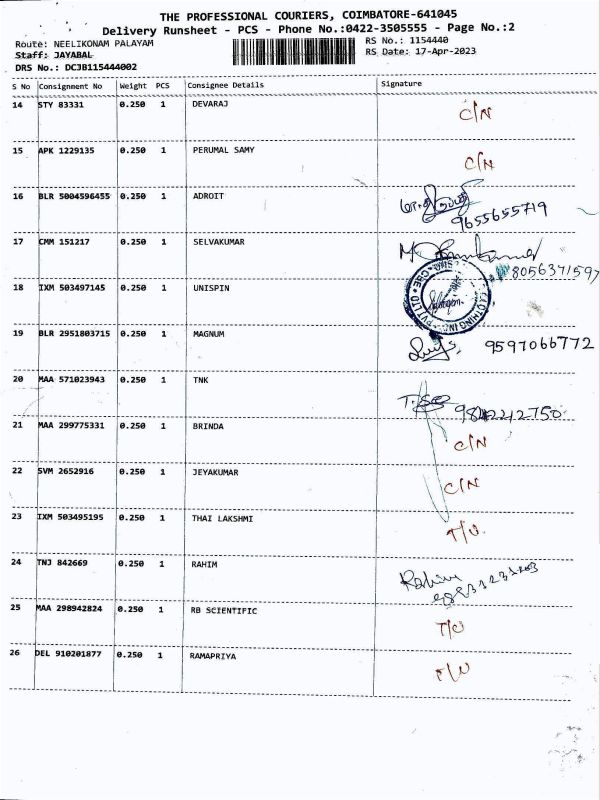 THE PROFESSIONAL COURIERS, COIMBATORE-641045
Delivery Runsheet - PCS - Phone No.:0422-3505555 - Page No.:2
Route: NEELIKONAM PALAYAM RS No.: 1154440
Staff: JAYABAL RS Date: 17-Apr-2023
DRS No.: DCJB115444002
S No Consignment No Weight PCS Consignee Details Signature
14 STY 83331 0.250 1 DEVARAJ C/N
15 APK 1229135 0.250 1 PERUMAL SAMY C/N
16 BLR 5004596455 0.250 1 ADROIT
9655655719
17 CMM 151217 0.250 1 SELVAKUMAR
8056371597
18 IXM 503497145 0.250 1 UNISPIN
19 BLR 2951803715 0.250 1 MAGNUM 9597066772
20 MAA 571023943 0.250 1 TNK
21 MAA 299775331 0.250 1 BRINDA C/N
22 SVM 2652916 0.250 1 JEYAKUMAR C/N
23 IXM 503495195 0.250 1 THAI LAKSHMI T/U.
24 TNJ 842669 0.250 1 RAHIM Rahim
25 MAA 298942824 0.250 1 RB SCIENTIFIC T/U
26 DEL 910201877 0.250 1 RAMAPRIYA